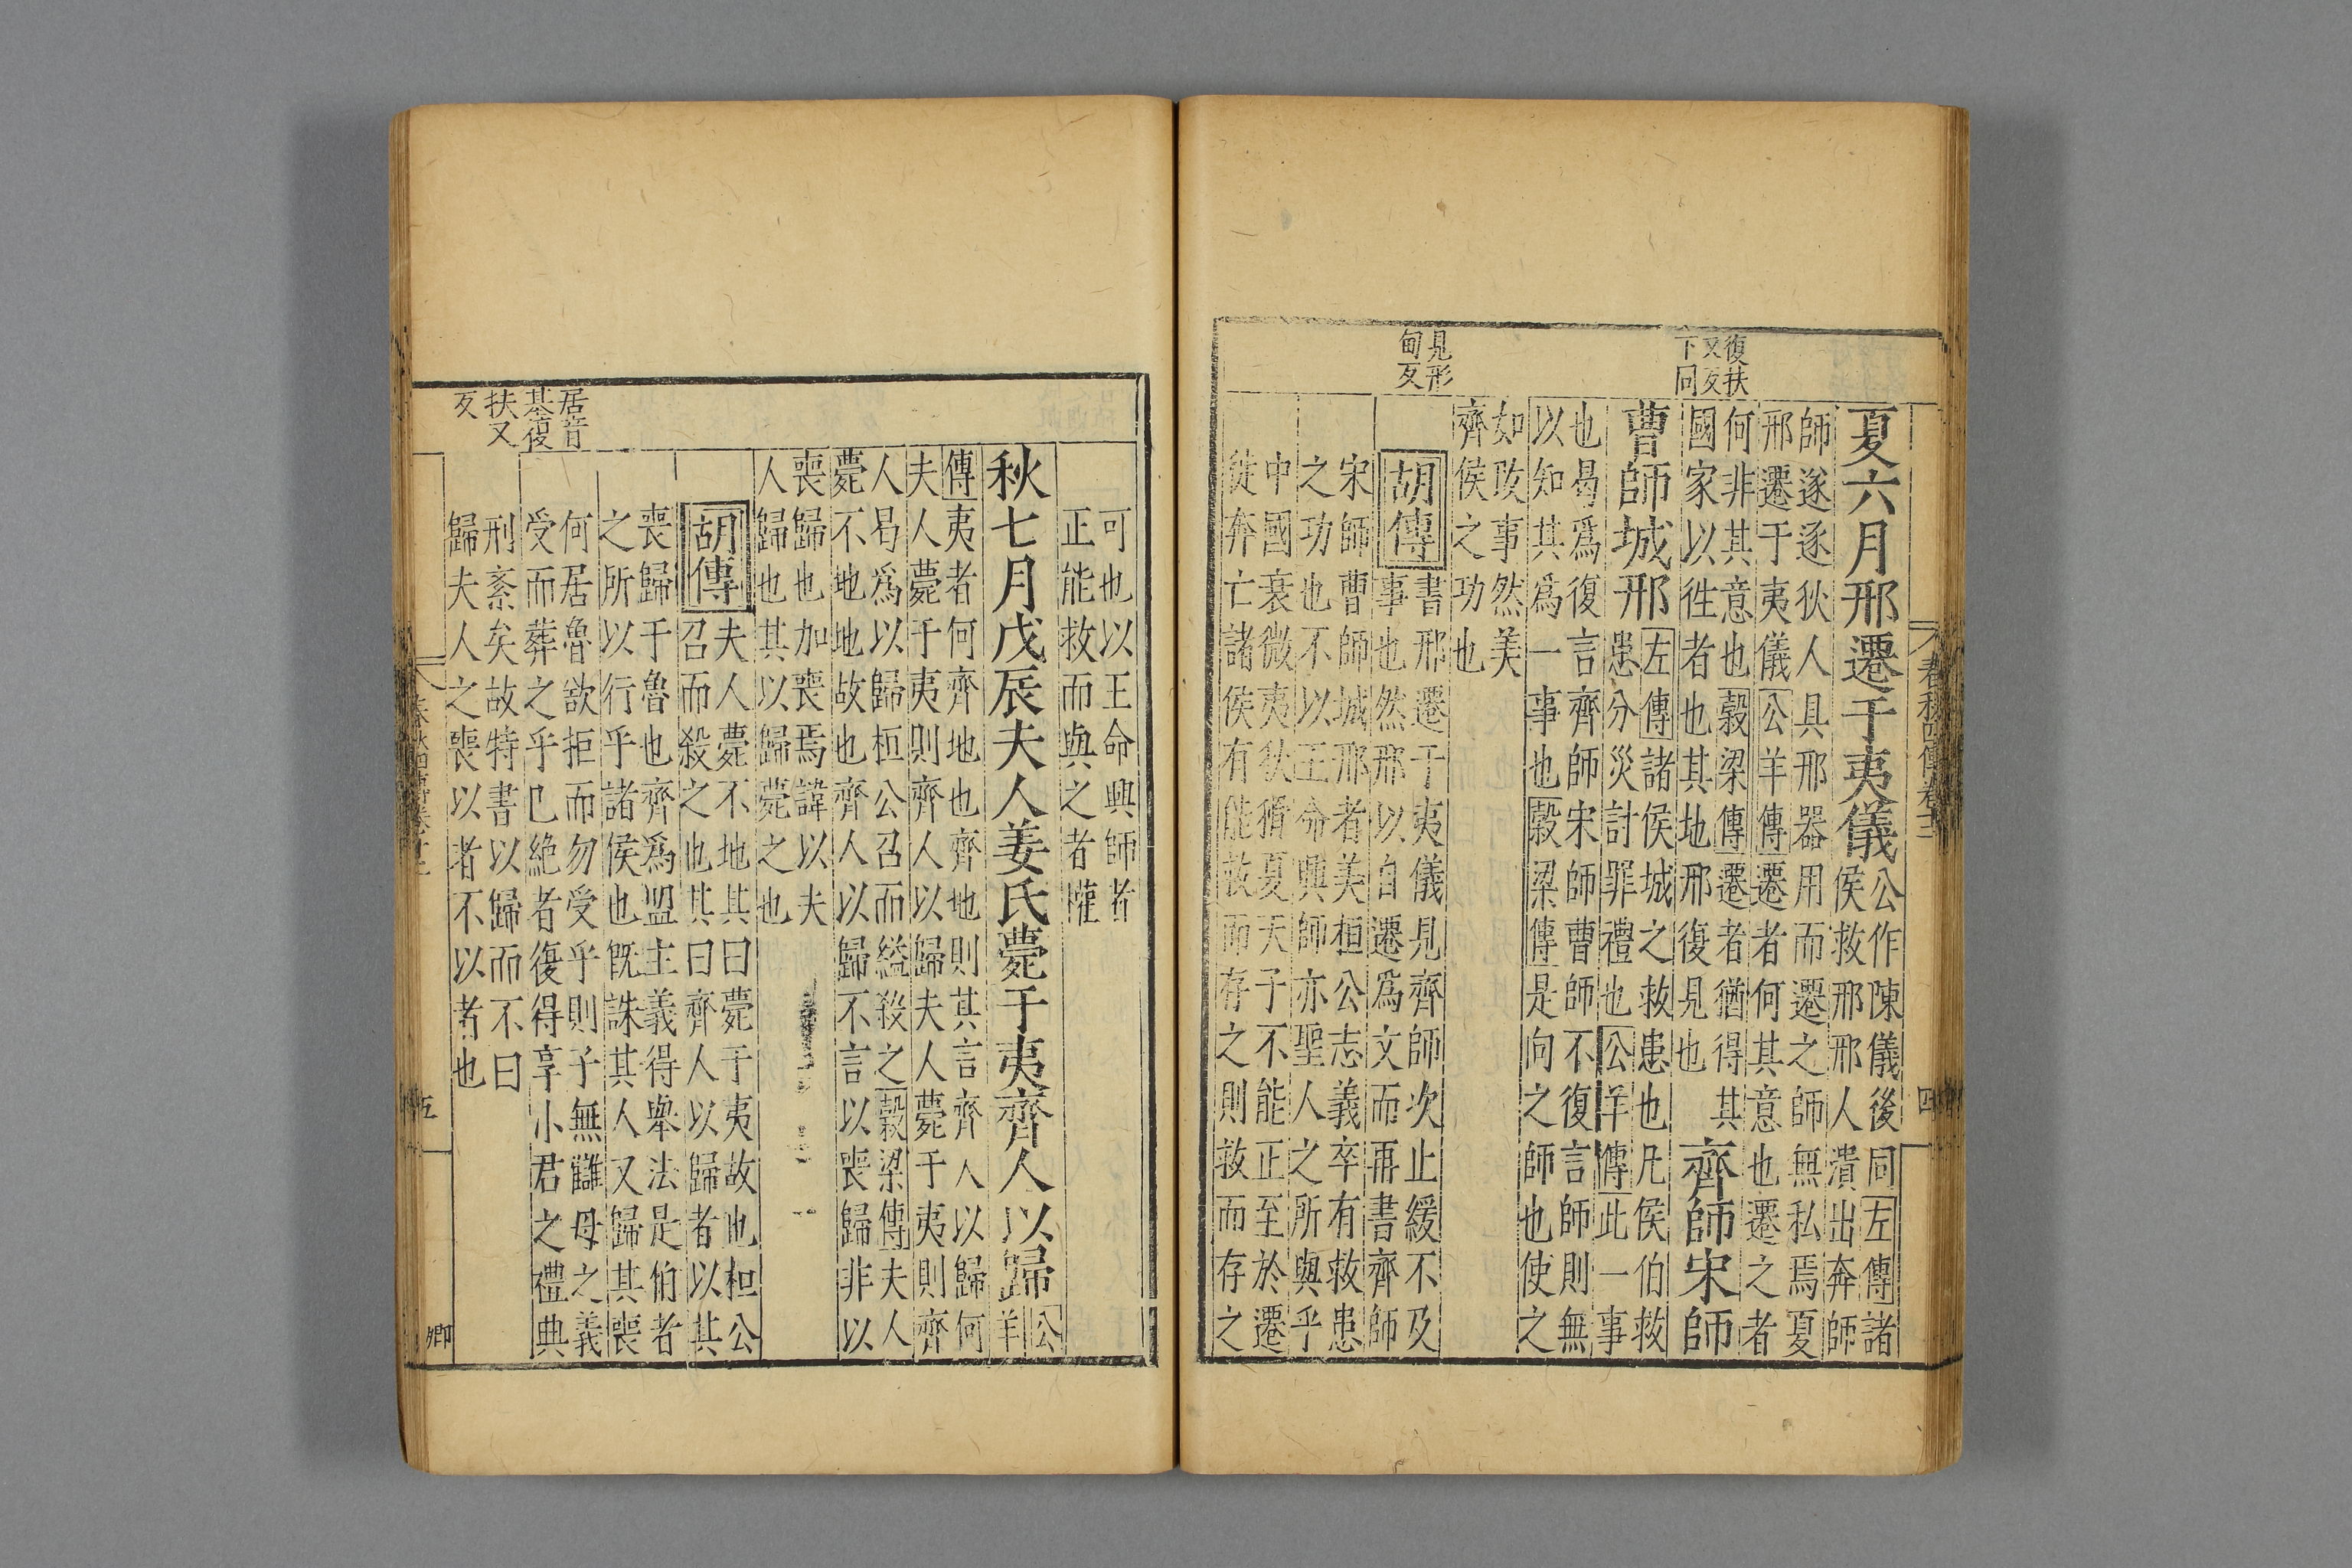 春秋四傳卷十二
四
復扶
又反
下同
見形
甸反
夏六月邢遷于夷儀
公作陳儀後同左傳諸
侯救邢邢人潰出奔師
師遂逐狄人具邢器用而遷之師無私焉夏
邢遷于夷儀公羊傳遷者何其意也遷之者
何非其意也穀梁傳遷者猶得其
國家以徃者也其地邢復見也
齊師宋師
曹師城邢
左傳諸侯城之救患也凡侯伯救
患分災討罪禮也公羊傳此一事
也曷爲復言齊師宋師曹師不復言師則無
以知其爲一事也穀梁傳是向之師也使之
如改事然美
齊侯之功也
胡傳
書邢遷于夷儀見齊師次止緩不及
事也然邢以自遷爲文而再書齊師
宋師曹師城邢者美桓公志義卒有救患
之功也不以王命興師亦聖人之所與乎
中國衰微夷狄猾夏天子不能正至於遷
徙奔亡諸侯有能救而存之則救而存之
可也以王命興師者
正能救而與之者權
秋七月戊辰夫人姜氏薨于夷齊人以歸
公
羊
傳夷者何齊地也齊地則其言齊人以歸何
夫人薨于夷則齊人以歸夫人薨于夷則齊
人曷爲以歸桓公召而縊殺之穀梁傳夫人
薨不地地故也齊人以歸不言以喪歸非以
喪歸也加喪焉諱以夫
人歸也其以歸薨之也
胡傳
夫人薨不地其曰薨于夷故也桓公
召而殺之也其曰齊人以歸者以其
喪歸于魯也齊爲盟主義得舉法是伯者
之所以行乎諸侯也既誅其人又歸其喪
何居魯欲拒而勿受乎則子無讎母之義
受而葬之乎巳絶者復得享小君之禮典
刑紊矣故特書以歸而不曰
歸夫人之喪以者不以者也
居音
基復
扶又
反
五
卿